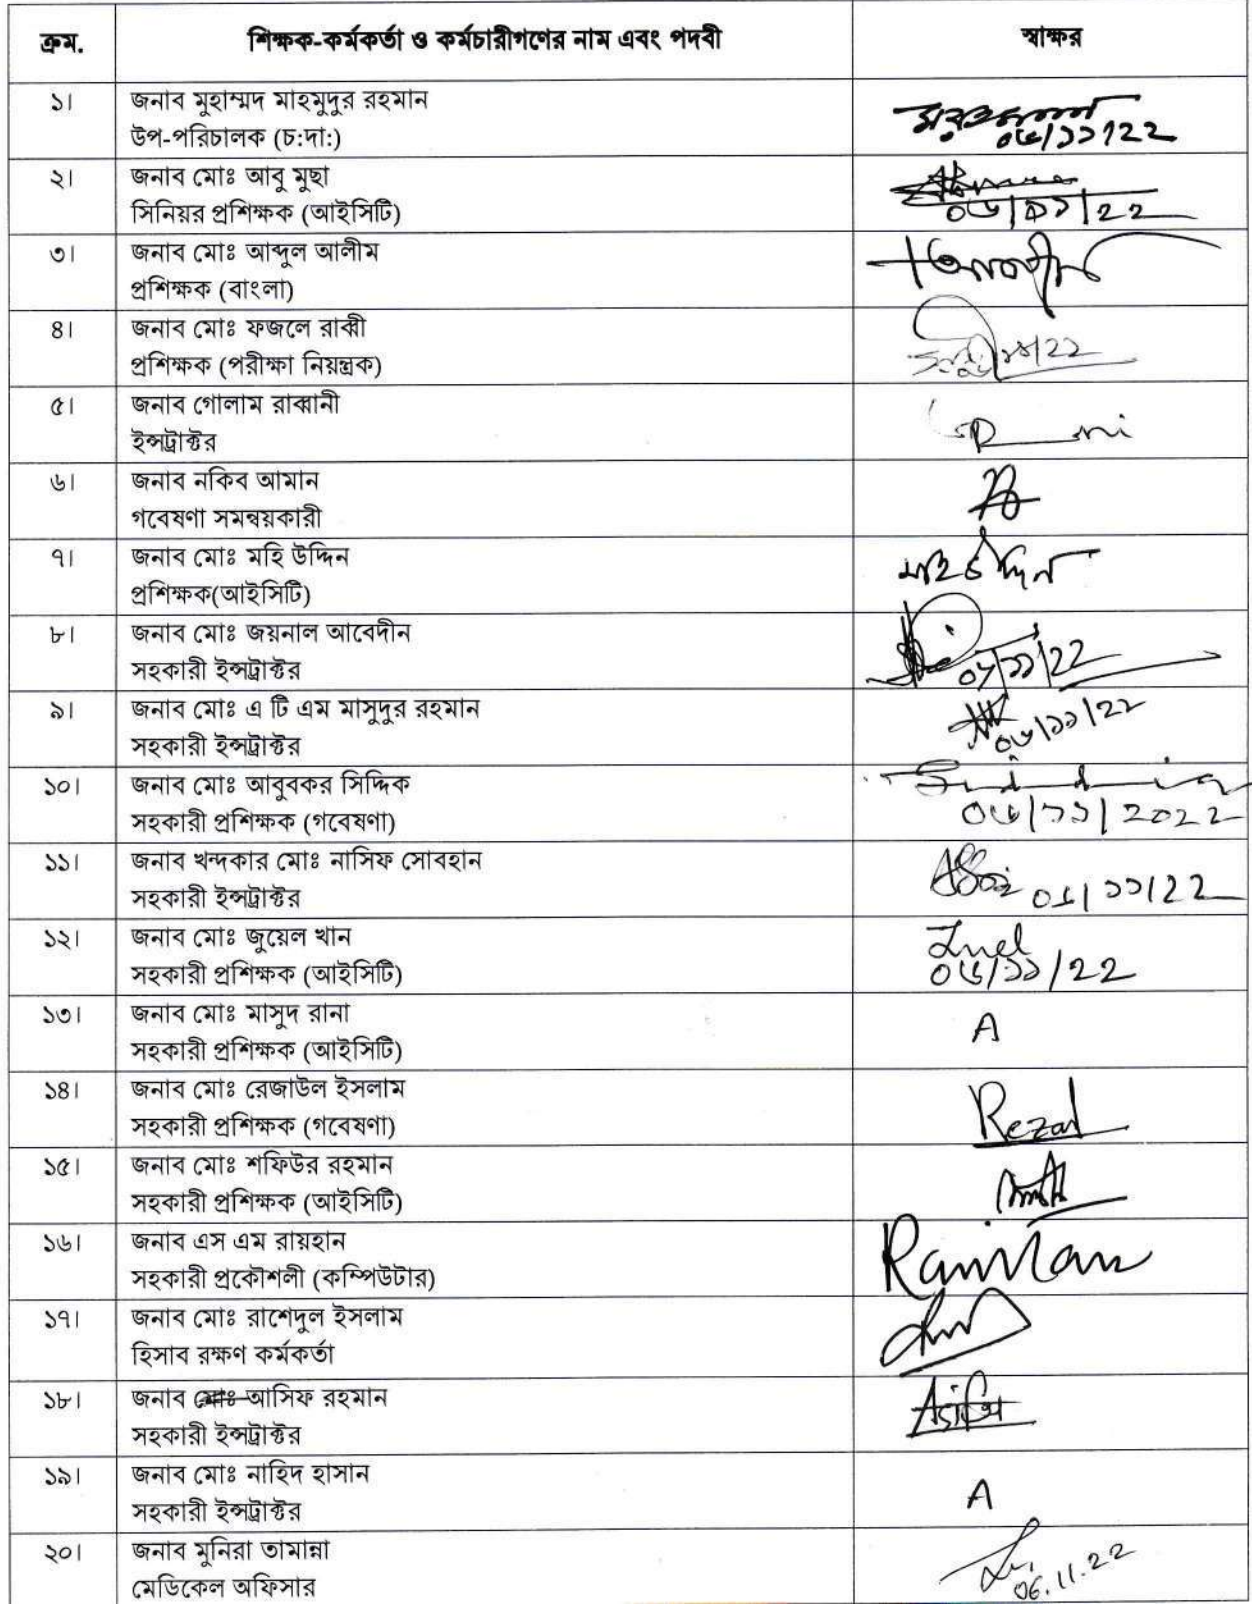 ক্রম. শিক্ষক-কর্মকর্তা ও কর্মচারীগণের নাম এবং পদবী স্বাক্ষর
১। জনাব মুহাম্মদ মাহমুদুর রহমান
উপ-পরিচালক (চ:দা:)
০৬/১১/২২
২। জনাব মোঃ আবু মুছা
সিনিয়র প্রশিক্ষক (আইসিটি)
০৬/১১/২২
৩। জনাব মোঃ আব্দুল আলীম
প্রশিক্ষক (বাংলা)
৪। জনাব মোঃ ফজলে রাব্বী
প্রশিক্ষক (পরীক্ষা নিয়ন্ত্রক)
৫। জনাব গোলাম রাব্বানী
ইন্সট্রাক্টর
৬। জনাব নকিব আমান
গবেষণা সমন্বয়কারী
৭। জনাব মোঃ মহি উদ্দিন
প্রশিক্ষক(আইসিটি)
মহিউদ্দিন
৮। জনাব মোঃ জয়নাল আবেদীন
সহকারী ইন্সট্রাক্টর
০৬/১১/২২
৯। জনাব মোঃ এ টি এম মাসুদুর রহমান
সহকারী ইন্সট্রাক্টর
০৬/১১/২২
১০। জনাব মোঃ আবুবকর সিদ্দিক
সহকারী প্রশিক্ষক (গবেষণা)
০৬/১১/২০২২
১১। জনাব খন্দকার মোঃ নাসিফ সোবহান
সহকারী ইন্সট্রাক্টর
০৬/১১/২২
১২। জনাব মোঃ জুয়েল খান
সহকারী প্রশিক্ষক (আইসিটি)
Juel
০৬/১১/২২
১৩। জনাব মোঃ মাসুদ রানা
সহকারী প্রশিক্ষক (আইসিটি)
A
১৪। জনাব মোঃ রেজাউল ইসলাম
সহকারী প্রশিক্ষক (গবেষণা)
Rezaul
১৫। জনাব মোঃ শফিউর রহমান
সহকারী প্রশিক্ষক (আইসিটি)
১৬। জনাব এস এম রায়হান
সহকারী প্রকৌশলী (কম্পিউটার)
Raihan
১৭। জনাব মোঃ রাশেদুল ইসলাম
হিসাব রক্ষণ কর্মকর্তা
১৮। জনাব মোঃ আসিফ রহমান
সহকারী ইন্সট্রাক্টর
১৯। জনাব মোঃ নাহিদ হাসান
সহকারী ইন্সট্রাক্টর
A
২০। জনাব মুনিরা তামান্না
মেডিকেল অফিসার
06.11.22